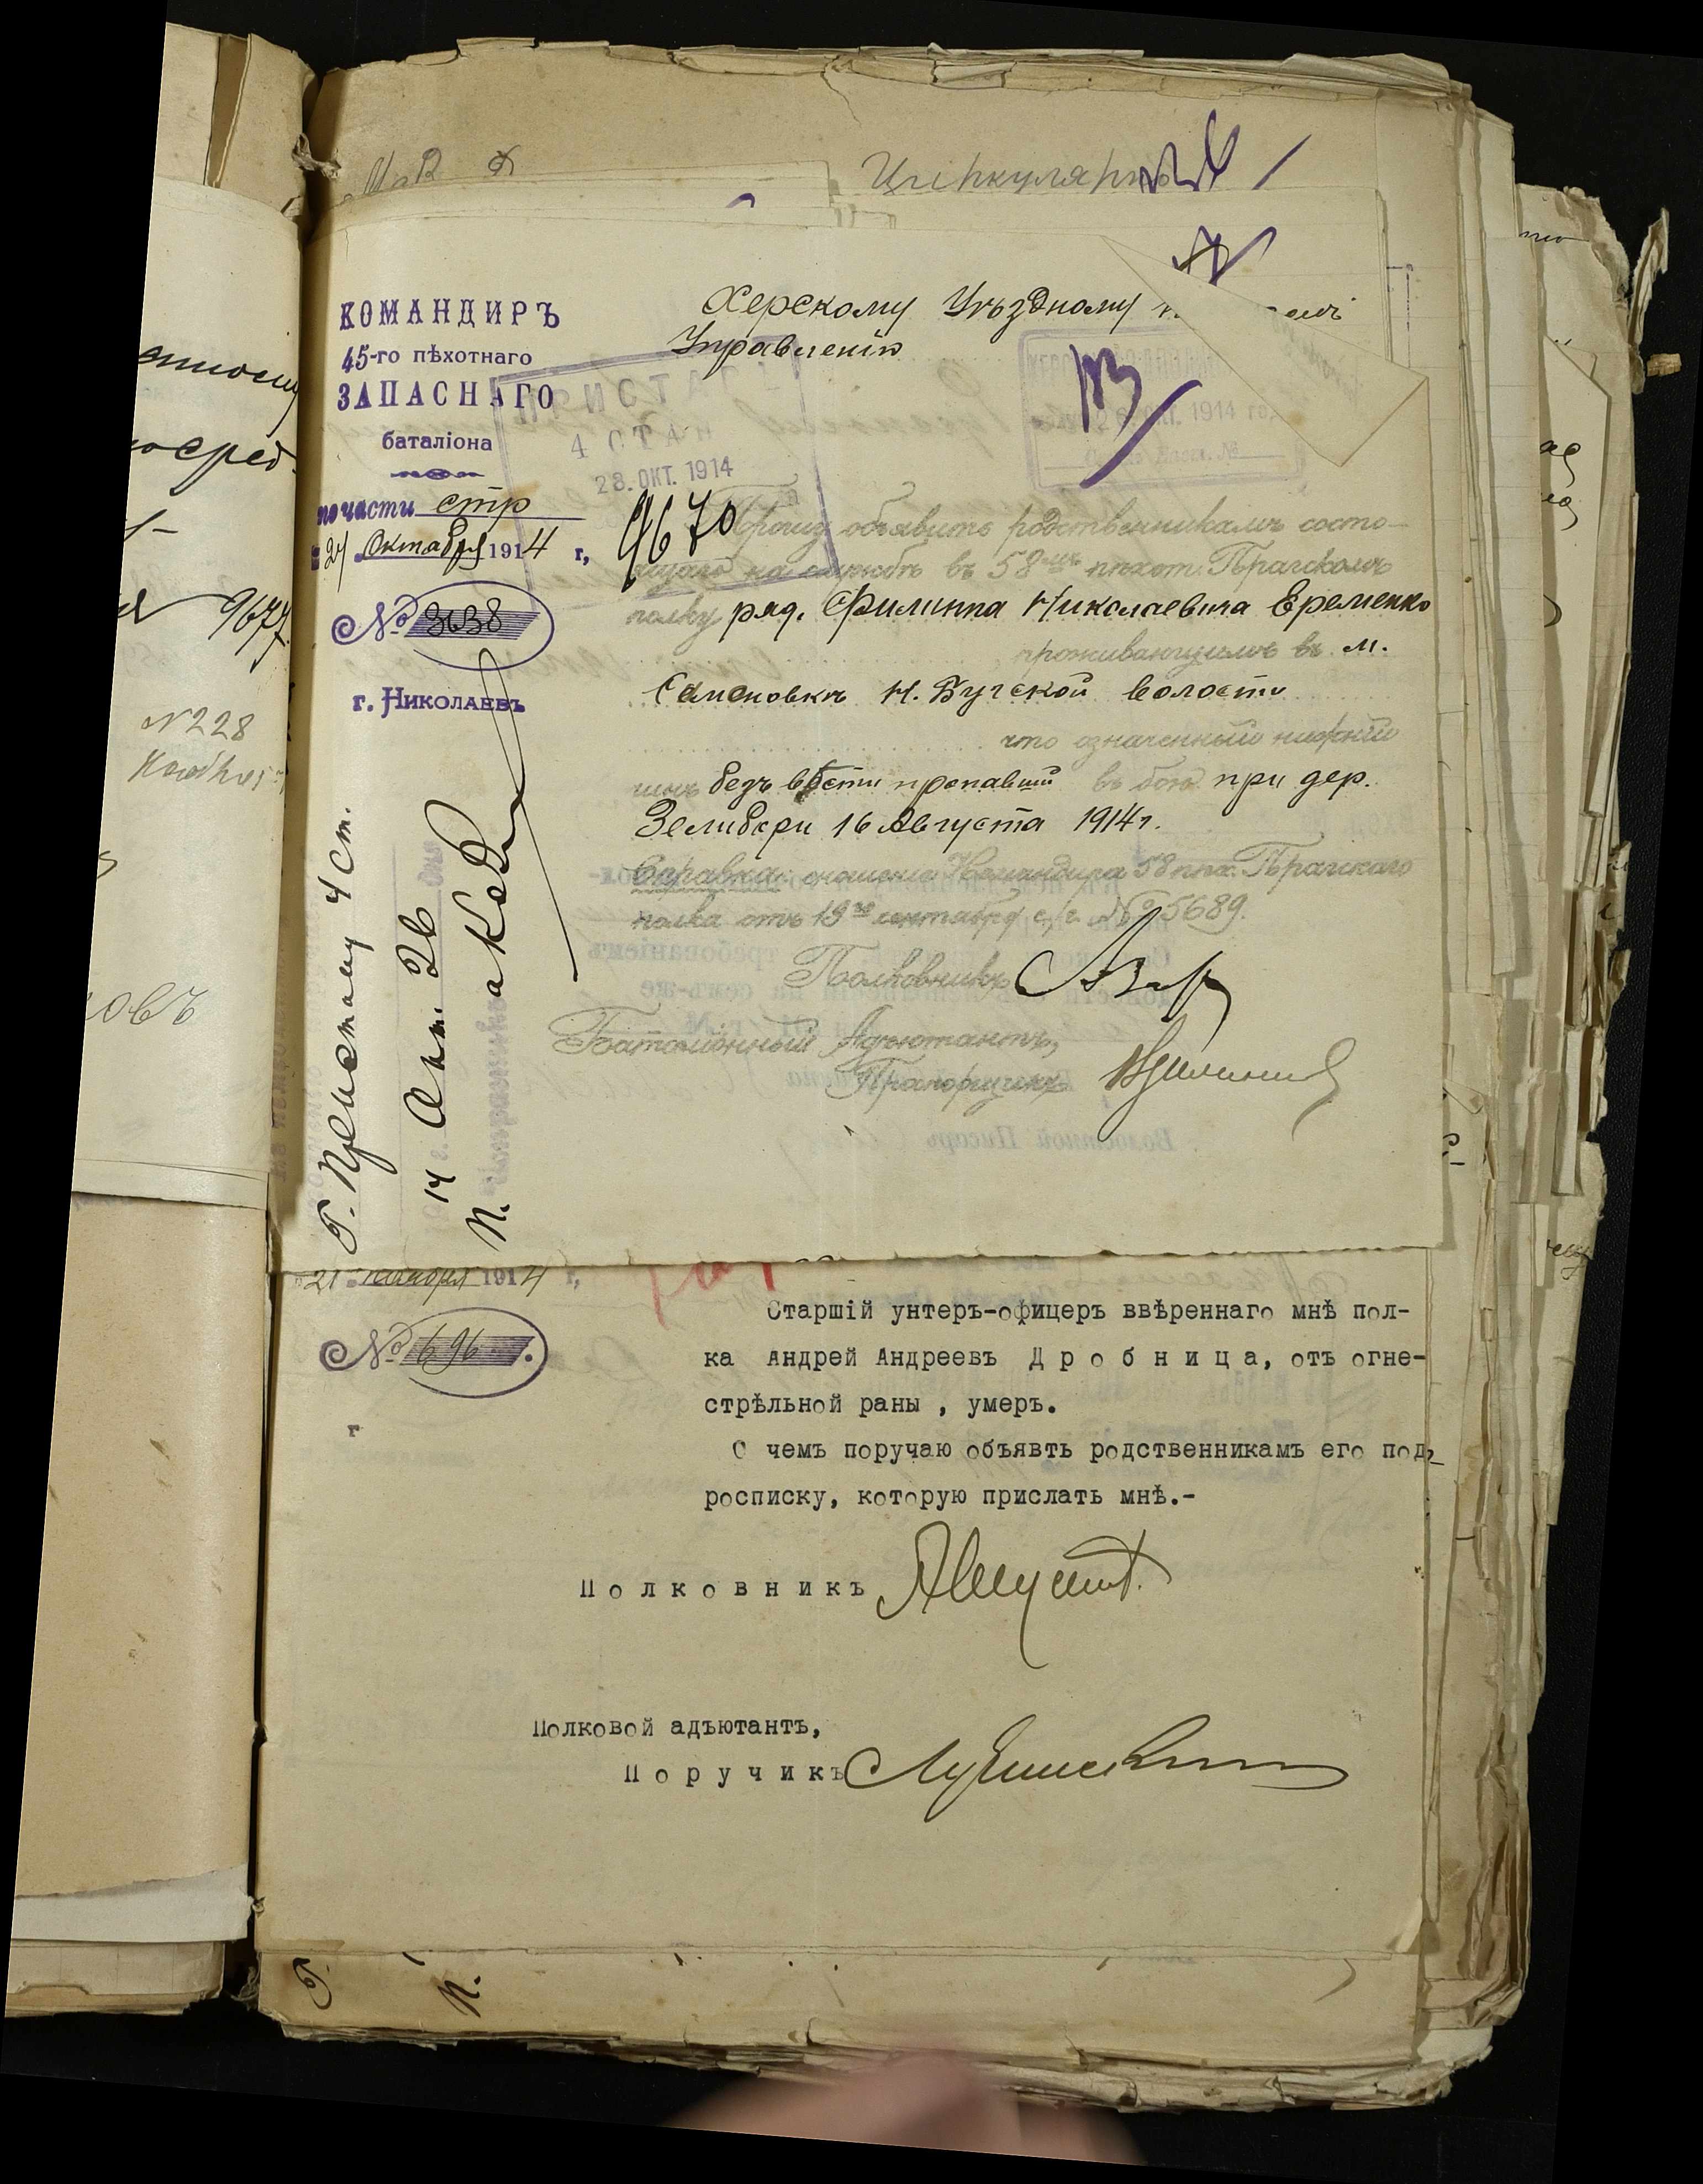 Циркулярно
КОМАНДИРЪ
45-го пѣхотнаго
ЗАПАСНАГО
баталіона
по части стр
24 Октября 1914 г,
№ 3038
г. Николаевъ
Херскому Уѣздному
Управленію
ПРИСТАВ
4 СТАН
28. ОКТ. 1914
ОКТ. 1914 год
9670
Прошу объявить родственникамъ состо-
ящаго на службѣ въ 58мъ пѣхот. Прагскомъ
полку ряд. Филиппа Николаевича Еременко
проживающимъ въ м.
Семеновкѣ Н. Бугской волости
что означенный нижній
чинъ безъ вѣсти пропавшій въ бою при дер.
Зелибори 16 Августа 1914 г.
Справка: сношеніе Командира 58 пѣх. Прагскаго
полка отъ 19го сентября с/г. № 5689.
Полковникъ
Баталіонный Адъютантъ,
Прапорщикъ
Г. Приставу 4 Ст.
14 Окт. 26
21 1914 г,
№ 696
Старшій унтеръ-офицеръ ввѣреннаго мнѣ пол-
ка Андрей Андреевъ Д р о б н и ц а, отъ огне-
стрѣльной раны , умеръ.
О чемъ поручаю объявть родственникамъ его под
росписку, которую прислать мнѣ.-
П о л к о в н и к ъ
Полковой адъютантъ,
П о р у ч и к ъ
осред-
9677
N 228
овъ